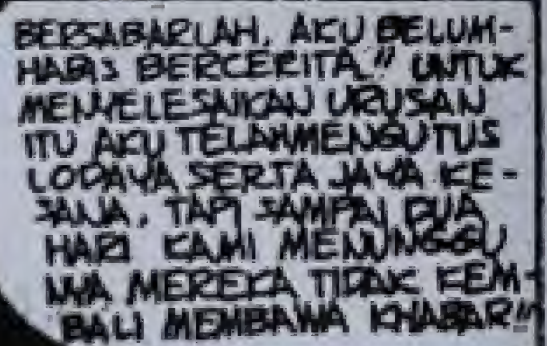 BERSABARLAH, AKU BELUM-
HABIS BERCERITA" UNTUK
MENYELESAIKAN URUSAN
ITU AKU TELAHMENGUTUS
LODAYA SERTA JAYA KE-
SANA, TAPI SAMPAI DUA
HARI KAMI MENUNGGU
NYA MEREKA TIDAK KEM-
BALI MEMBAWA KHABAR!"